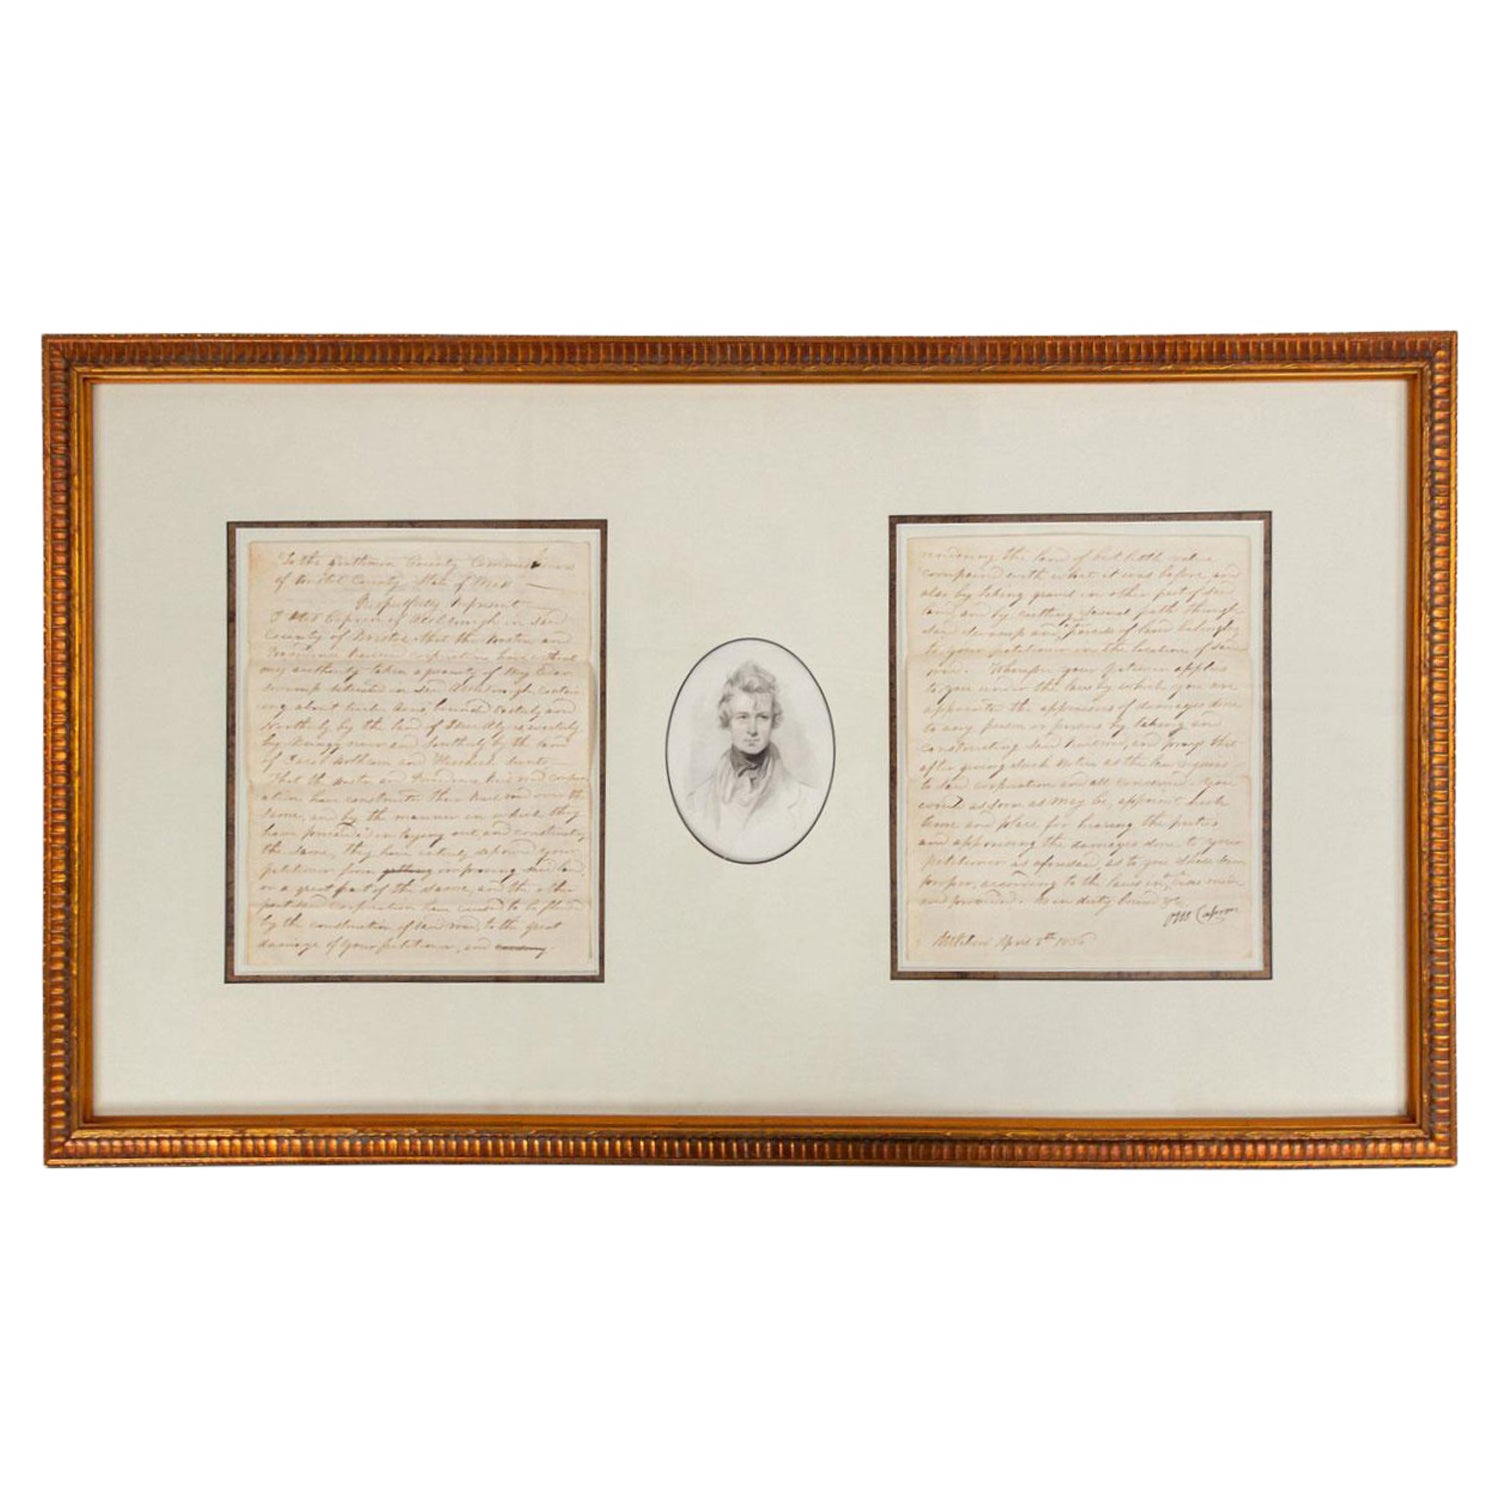 To the Gentlemen County Commissioners
of Bristol County State of Mass
Respectfully Represent
I Otis Capron of Attleborough in said
County of Bristol that the Boston and
Providence Railroad Corporation have without
my authority taken a quantity of my Cedar
swamp situated in said Attleborough contain
ing about twelve acres, bounded Easterly and
Northerly by the land of westerly
by and Southerly by the land
of and
That the Boston and Providence Rail road corpor
ation have constructed their Rail road over the
same, and by the manner in which they
have proceeded in laying out and constructing
the same, they have entirely deprived your
petitioner from getting improving said land,
or a great part of the same, and the other
part said corporation have caused to be flowed
by the construction of said road, to the great
damage of your petitioner, and
rendering the land of but little value
compared with what it was before, and
also by taking gravel in other part of said
land and by cutting path through
said swamp and parcels of land belonging
to your petitioner in the location of said
road. Wherefore your petitioner applies
to you under the law by which you are
the of damages done
to any person or persons by taking and
constructing said Railroad, and prays that
after giving such notice as the law requires
to said corporation and all concerned. You
would as soon as may be, appoint such
time and place for hearing the parties
and apprising the damages done to your
petitioner as aforesaid, as to you shall seem
proper, according to the laws in, case made
and provided. As in duty bound &c.
Otis Capron
Attleboro April 8th 1836